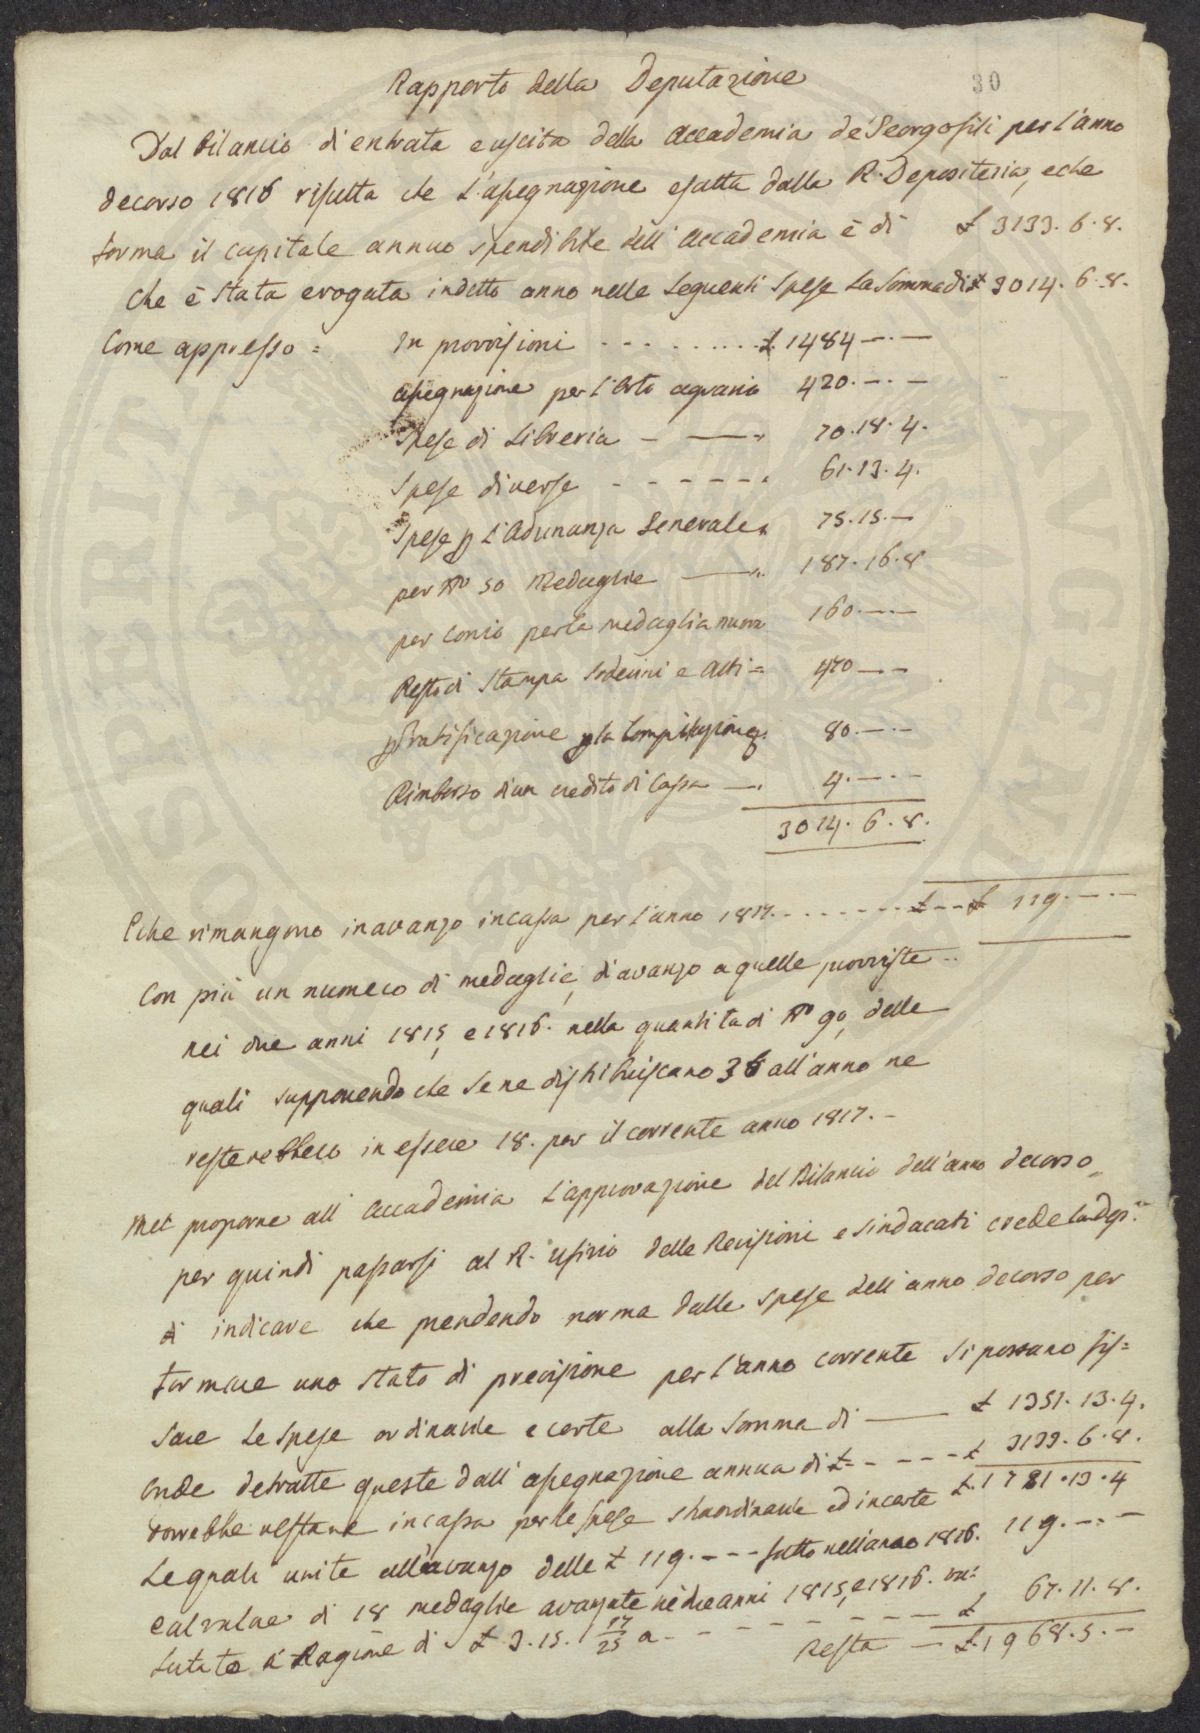 30
Rapporto della Deputazione
Dal Bilancio di entrata e uscita della Accademia de' Georgofili per l'anno
decorso 1816 risulta che L'assegnazione esatta dalla R. Depositeria, e che
forma il capitale annuo spendibile dell'Accademia è di £ 3133. 6. 8.
Che è stata erogata in detto anno nelle seguenti Spese La Somma di £ 3014. 6. 8.
Come appresso = In provvisioni - - - - £ 1484 — . —
assegnazione per l'Orto agrario 420. — . —
Spese di Libreria - — " 70. 18. 4.
Spese diverse - - - - - - " 61. 13. 4.
Spese p L'Adunanza Generale " 75. 15. —
per No 50 Medaglie — " 187. 16. 8
per Conio per la medaglia nuova 160. — . —
Resto di Stampa Soderini e Atti = 470 — . —
Gratificazione p la Compilazione 80. — . —
Rimborso d'un credito di Cassa — . 4. — . —
3014. 6. 8.
E che rimangono in avanzo in cassa per l'anno 1817. - - - - - £ - - £ 119. — . —
Con più un numero di medaglie, d'avanzo a quelle provviste
nei due anni 1815, e 1816. nella quantità di No 90, delle
quali supponendo che se ne distribuiscano 36 all'anno ne
resterebbero in essere 18. per il corrente anno 1817. -
Nel proporne all'Accademia L'approvazione del Bilancio dell'anno decorso
per quindi passarsi al R. Ufizio delle Revisioni e Sindacati crede la Dep.ne
di indicare che prendendo norma dalle spese dell'anno decorso per
formare uno stato di previsione per l'anno corrente si possano fis=
sare Le Spese ordinarie e certe alla Somma di — £ 1351. 13. 4.
Onde detratte queste dall'assegnazione annua di £ - - - - - £ 3133. 6. 8.
dovrebbe restare in cassa per le spese straordinarie ed incerte £. 1781. 13. 4
Le quali unite all'avanzo delle £ 119. - - - fatto nell'anno 1816. 119. — . —
e al valore di 18 medaglie avanzate ne' due anni 1815, e 1816. va=
lutate a Ragione di £ 3. 15. 17/25 a - - - - - £ 67. 11. 8.
Resta — £. 1968. 5. —